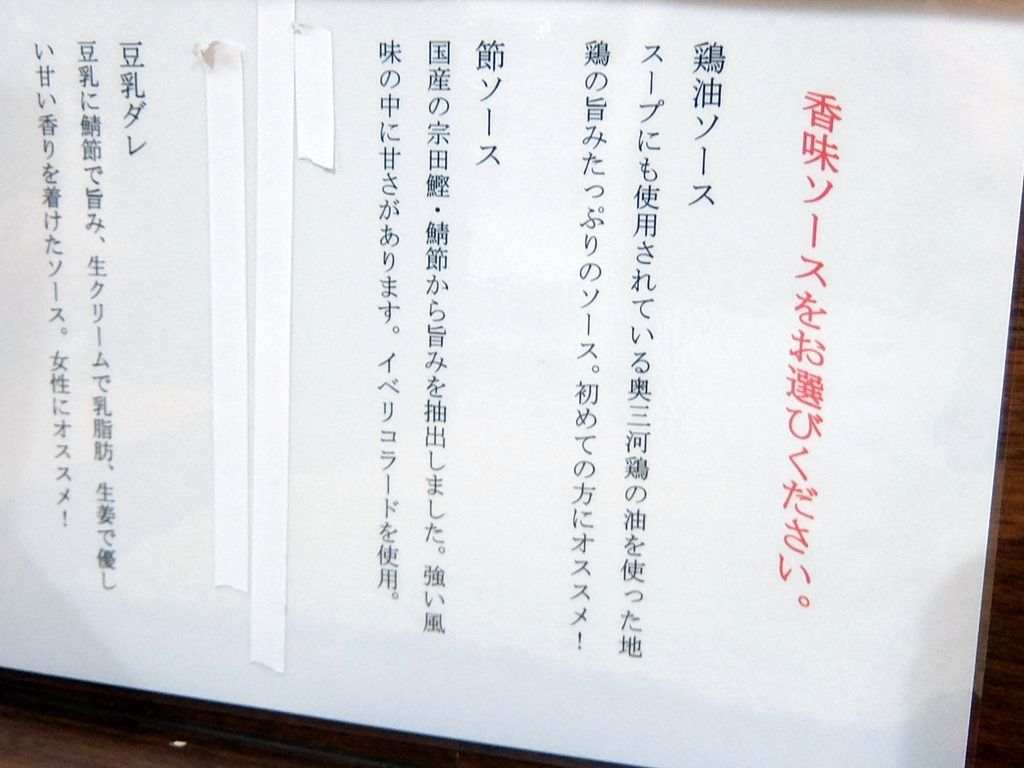 香味ソースをお選びください。
鶏油ソース
スープにも使用されている奥三河鶏の油を使った地
鶏の旨みたっぷりのソース。初めての方にオススメ！
節ソース
国産の宗田鰹・鯖節から旨みを抽出しました。強い風
味の中に甘さがあります。イベリコラードを使用。
豆乳ダレ
豆乳に鯖節で旨み、生クリームで乳脂肪、生姜で優し
い甘い香りを着けたソース。女性にオススメ！